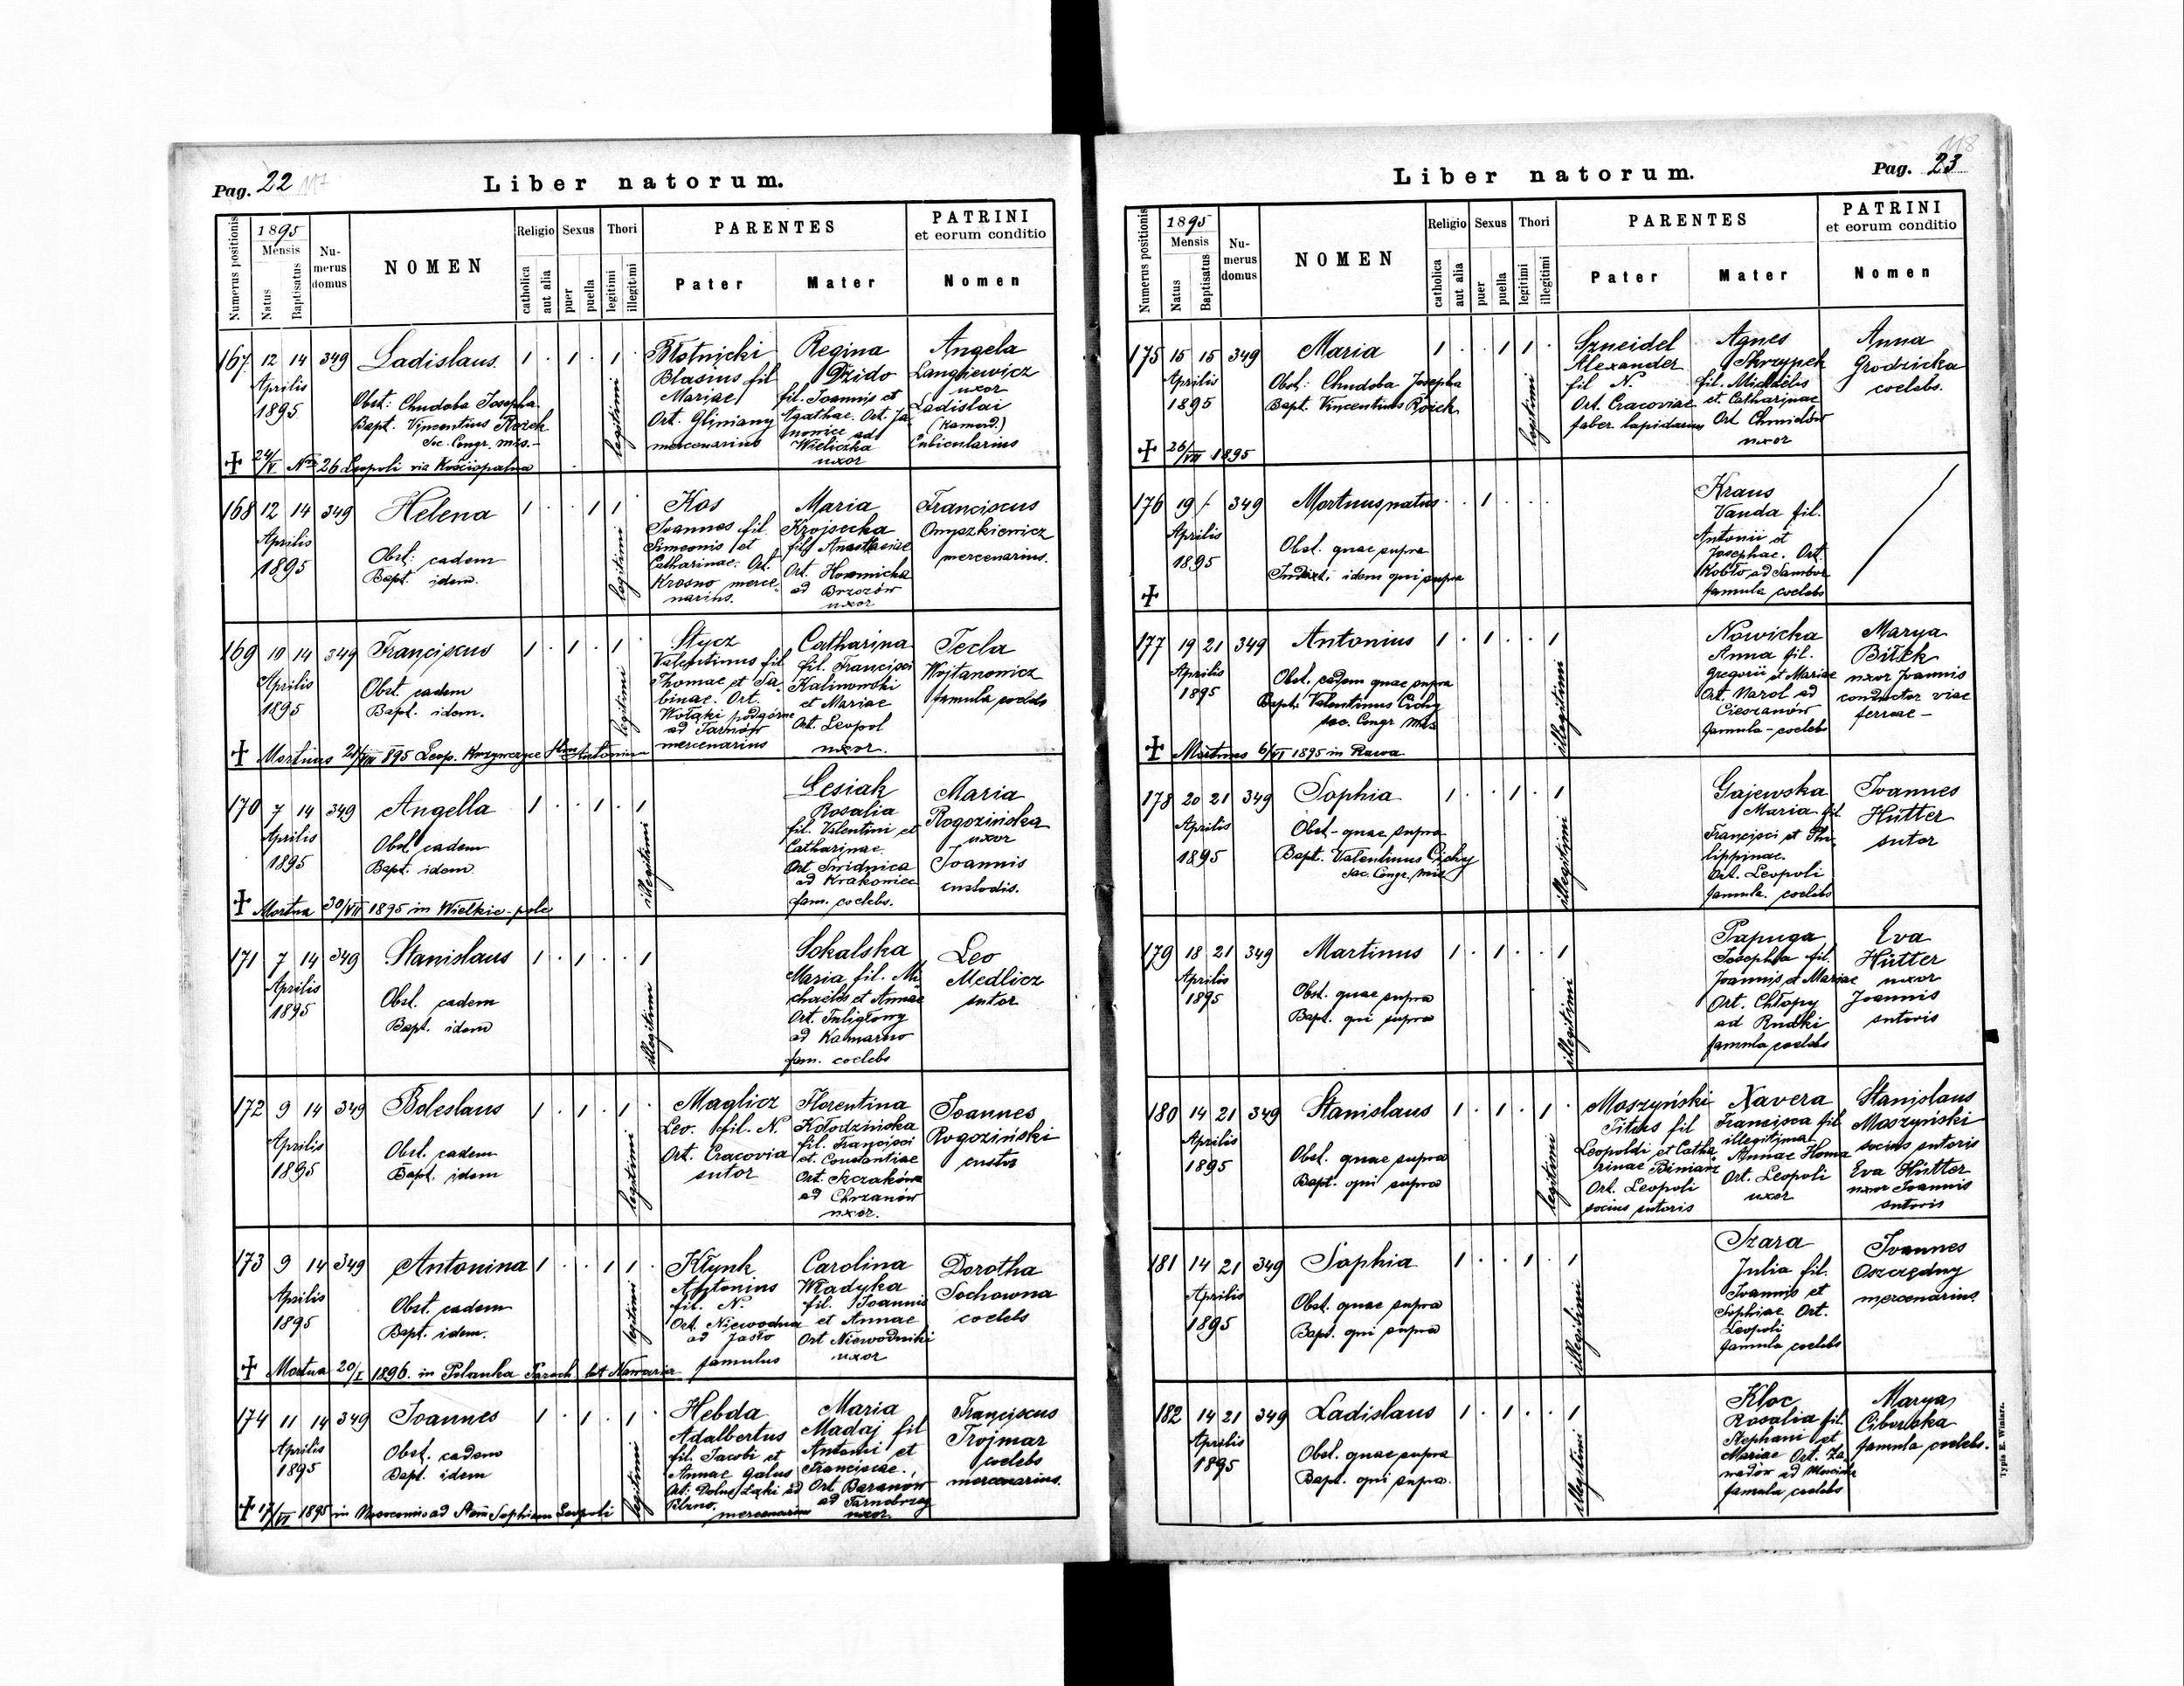 Pag. 22 117
Liber natorum.
Numerus positionis
1895
Mensis
Natus
Baptisatus
Nu-
merus
domus
NOMEN
Religio
catholica
aut alia
Sexus
puer
puella
Thori
legitimi
illegitimi
PARENTES
Pater
Mater
PATRINI
et eorum conditio
Nomen
167 12 14 349 Ladislaus 1 . 1 . 1 .
Aprilis
1895
Obst: Chudoba Josepha
Bapt. Vincentius Rozek
Sac. Congr. mis.
legitimi
Błotnicki
Blasius fil
Mariae
Ort. Gliniany
mercenarius
Regina
Dzido
fil. Joannis et
Agathae. Ort. Ja
nowice ad
Wieliczka
uxor
Angela
Langiewicz
uxor
Ladislai
(Kamerd.)
Cubicularius
+ 24/V Nro 26 Leopoli via Kościopalna
168 12 14 349 Helena 1 . . 1 1
Aprilis
1895
Obst: eadem
Bapt. idem.
legitimi
Kos
Joannes fil
Simeonis et
Catharinae. Ort.
Krosno merce
narius.
Maria
fil. Anastasiae
Ort.
ad Brzozów
uxor
Franciscus
Onyszkiewicz
mercenarius.
169 10 14 349 Franciscus 1 . 1 . 1
Aprilis
1895
Obst. eadem
Bapt. idem.
legitimi
Stycz
Valentinus fil
Thomae et Sa
binae. Ort.
ad Tarnów
mercenarius
Catharina
fil. Francisci
Kalinowski
et Mariae
Ort. Leopol
uxor.
Tecla
Wojtanowicz
famula coelebs
+ Mortuus 895 Leop.
170 7 14 349 Angella 1 . . 1 . 1
Aprilis
1895
Obst. eadem
Bapt. idem.
illegitimi
Lesiak
Rosalia
fil. Valentini et
Catharinae.
Ort Swidnica
ad Krakowiec
fam. coelebs.
Maria
Rogozińska
uxor
Joannis
custodis.
+ Mortua 30/VII 1895 in Wielkie-pole
171 7 14 349 Stanislaus 1 . 1 . . 1
Aprilis
1895
Obst. eadem
Bapt. idem
illegitimi
Sokalska
Maria fil. Mi
chaelis et Annae
Ort. Tuligłowy
ad Komarno
fam. coelebs
Leo
Medlicz
sutor
172 9 14 349 Boleslaus 1 . 1 . 1 .
Aprilis
1895
Obst. eadem
Bapt. idem
legitimi
Maglicz
Leo. fil. N.
Ort. Cracovia
sutor
Florentina
Kołodzińska
fil. Francisci
et. Constantiae
Ort. Szczakowa
ad Chrzanów
uxor.
Joannes
Rogoziński
custos
173 9 14 349 Antonina 1 . . 1 1 .
Aprilis
1895
Obst. eadem
Bapt. idem.
legitimi
Kłynk
Antonius
fil. N.
Ort. Niewodna
ad Jasło
famulus
Carolina
Władyka
fil. Joannis
et Annae
Ort Niewodniki
uxor
Dorotha
Sochowna
coelebs
+ Mortua 20/I 1896. in Polanka Paroch. lat Nawaria
174 11 14 349 Joannes 1 . 1 . 1 .
Aprilis
1895
Obst. eadem
Bapt. idem
legitimi
Hebda
Adalbertus
fil. Jacobi et
Annae Galus
Ort. Dolne Łęki ad
Pilzno.
mercenarius
Maria
Madaj fil
Antonii et
Franciscae.
Ort Baranów
ad Tarnobrzeg
uxor
Franciscus
Trojmar
coelebs
mercenarius.
+ 17/VI 1895 in Nosocomio ad Stam Sophiam Leopoli
118
Liber natorum.
Pag. 23
Numerus positionis
1895
Mensis
Natus
Baptisatus
Nu-
merus
domus
NOMEN
Religio
catholica
aut alia
Sexus
puer
puella
Thori
legitimi
illegitimi
PARENTES
Pater
Mater
PATRINI
et eorum conditio
Nomen
175 15 15 349 Maria 1 . . 1 1 .
Aprilis
1895
Obst: Chudoba Josepha
Bapt. Vincentius Rozek
legitimi
Szneidel
Alexander
fil N.
Ort. Cracoviae
faber lapidarius
Agnes
Skrzypek
fil. Michaelis
et Catharinae
Ort Chmielów
uxor
Anna
Grodzicka
coelebs.
+ 26/VII 1895
176 19 /. 349 Mortuus natus . . 1 . . .
Aprilis
1895
Obst. quae supra
idem qui supra
Kraus
Vanda fil.
Antonii et
Josephae. Ort.
Kobło ad Sambor
famula coelebs
+
177 19 21 349 Antonius 1 . 1 . . 1
Aprilis
1895
Obst. eadem quae supra
Bapt. Valentinus Cichy
sac. Congr Mis
illegitimi
Nowicka
Anna fil.
Gregorii et Mariae
Ort. Narol ad
Cieszanów
famula - coelebs
Marya
Bitek
uxor Joannis
conductor viae
ferreae -
+ Mortuus 6/VI 1895 in Rawa
178 20 21 349 Sophia 1 . . 1 . 1
Aprilis
1895
Obst - quae supra
Bapt. Valentinus Cichy
Sac. Congr. mis
illegitimi
Gajewska
Maria fil.
Francisci et Phi
lippinae.
Ort. Leopoli
famula. coelebs
Joannes
Hütter
sutor
179 18 21 349 Martinus 1 . 1 . . 1
Aprilis
1895
Obst. quae supra
Bapt. qui supra
illegitimi
Papuga
Josepha fil.
Joannis et Mariae
Ort. Chłopy
ad Rudki
famula coelebs
Eva
Hütter
uxor
Joannis
sutoris
180 14 21 349 Stanislaus 1 . 1 . 1 .
Aprilis
1895
Obst. quae supra
Bapt. qui supra
legitimi
Moszyński
Titus fil
Leopoldi et Catha
rinae
Ort. Leopoli
socius sutoris
Xavera
Francisca fil
illegitima
Annae Homa
Ort. Leopoli
uxor
Stanislaus
Moszyński
socius sutoris
Eva Hütter
uxor Joannis
sutoris
181 14 21 349 Sophia 1 . . 1 . 1
Aprilis
1895
Obst. quae supra
Bapt. qui supra
illegitimi
Szara
Julia fil.
Joannis et
Sophiae Ort.
Leopoli
famula coelebs
Joannes
Oszczędny
mercenarius.
182 14 21 349 Ladislaus 1 . 1 . . 1
Aprilis
1895
Obst. quae supra
Bapt. qui supra.
illegitimi
Kloc
Rosalia fil.
Stephani et
Mariae Ort. Za
wadów ad Mościska
famula coelebs
Marya
Ciborska
famula coelebs.
Typis E. Winiarz.